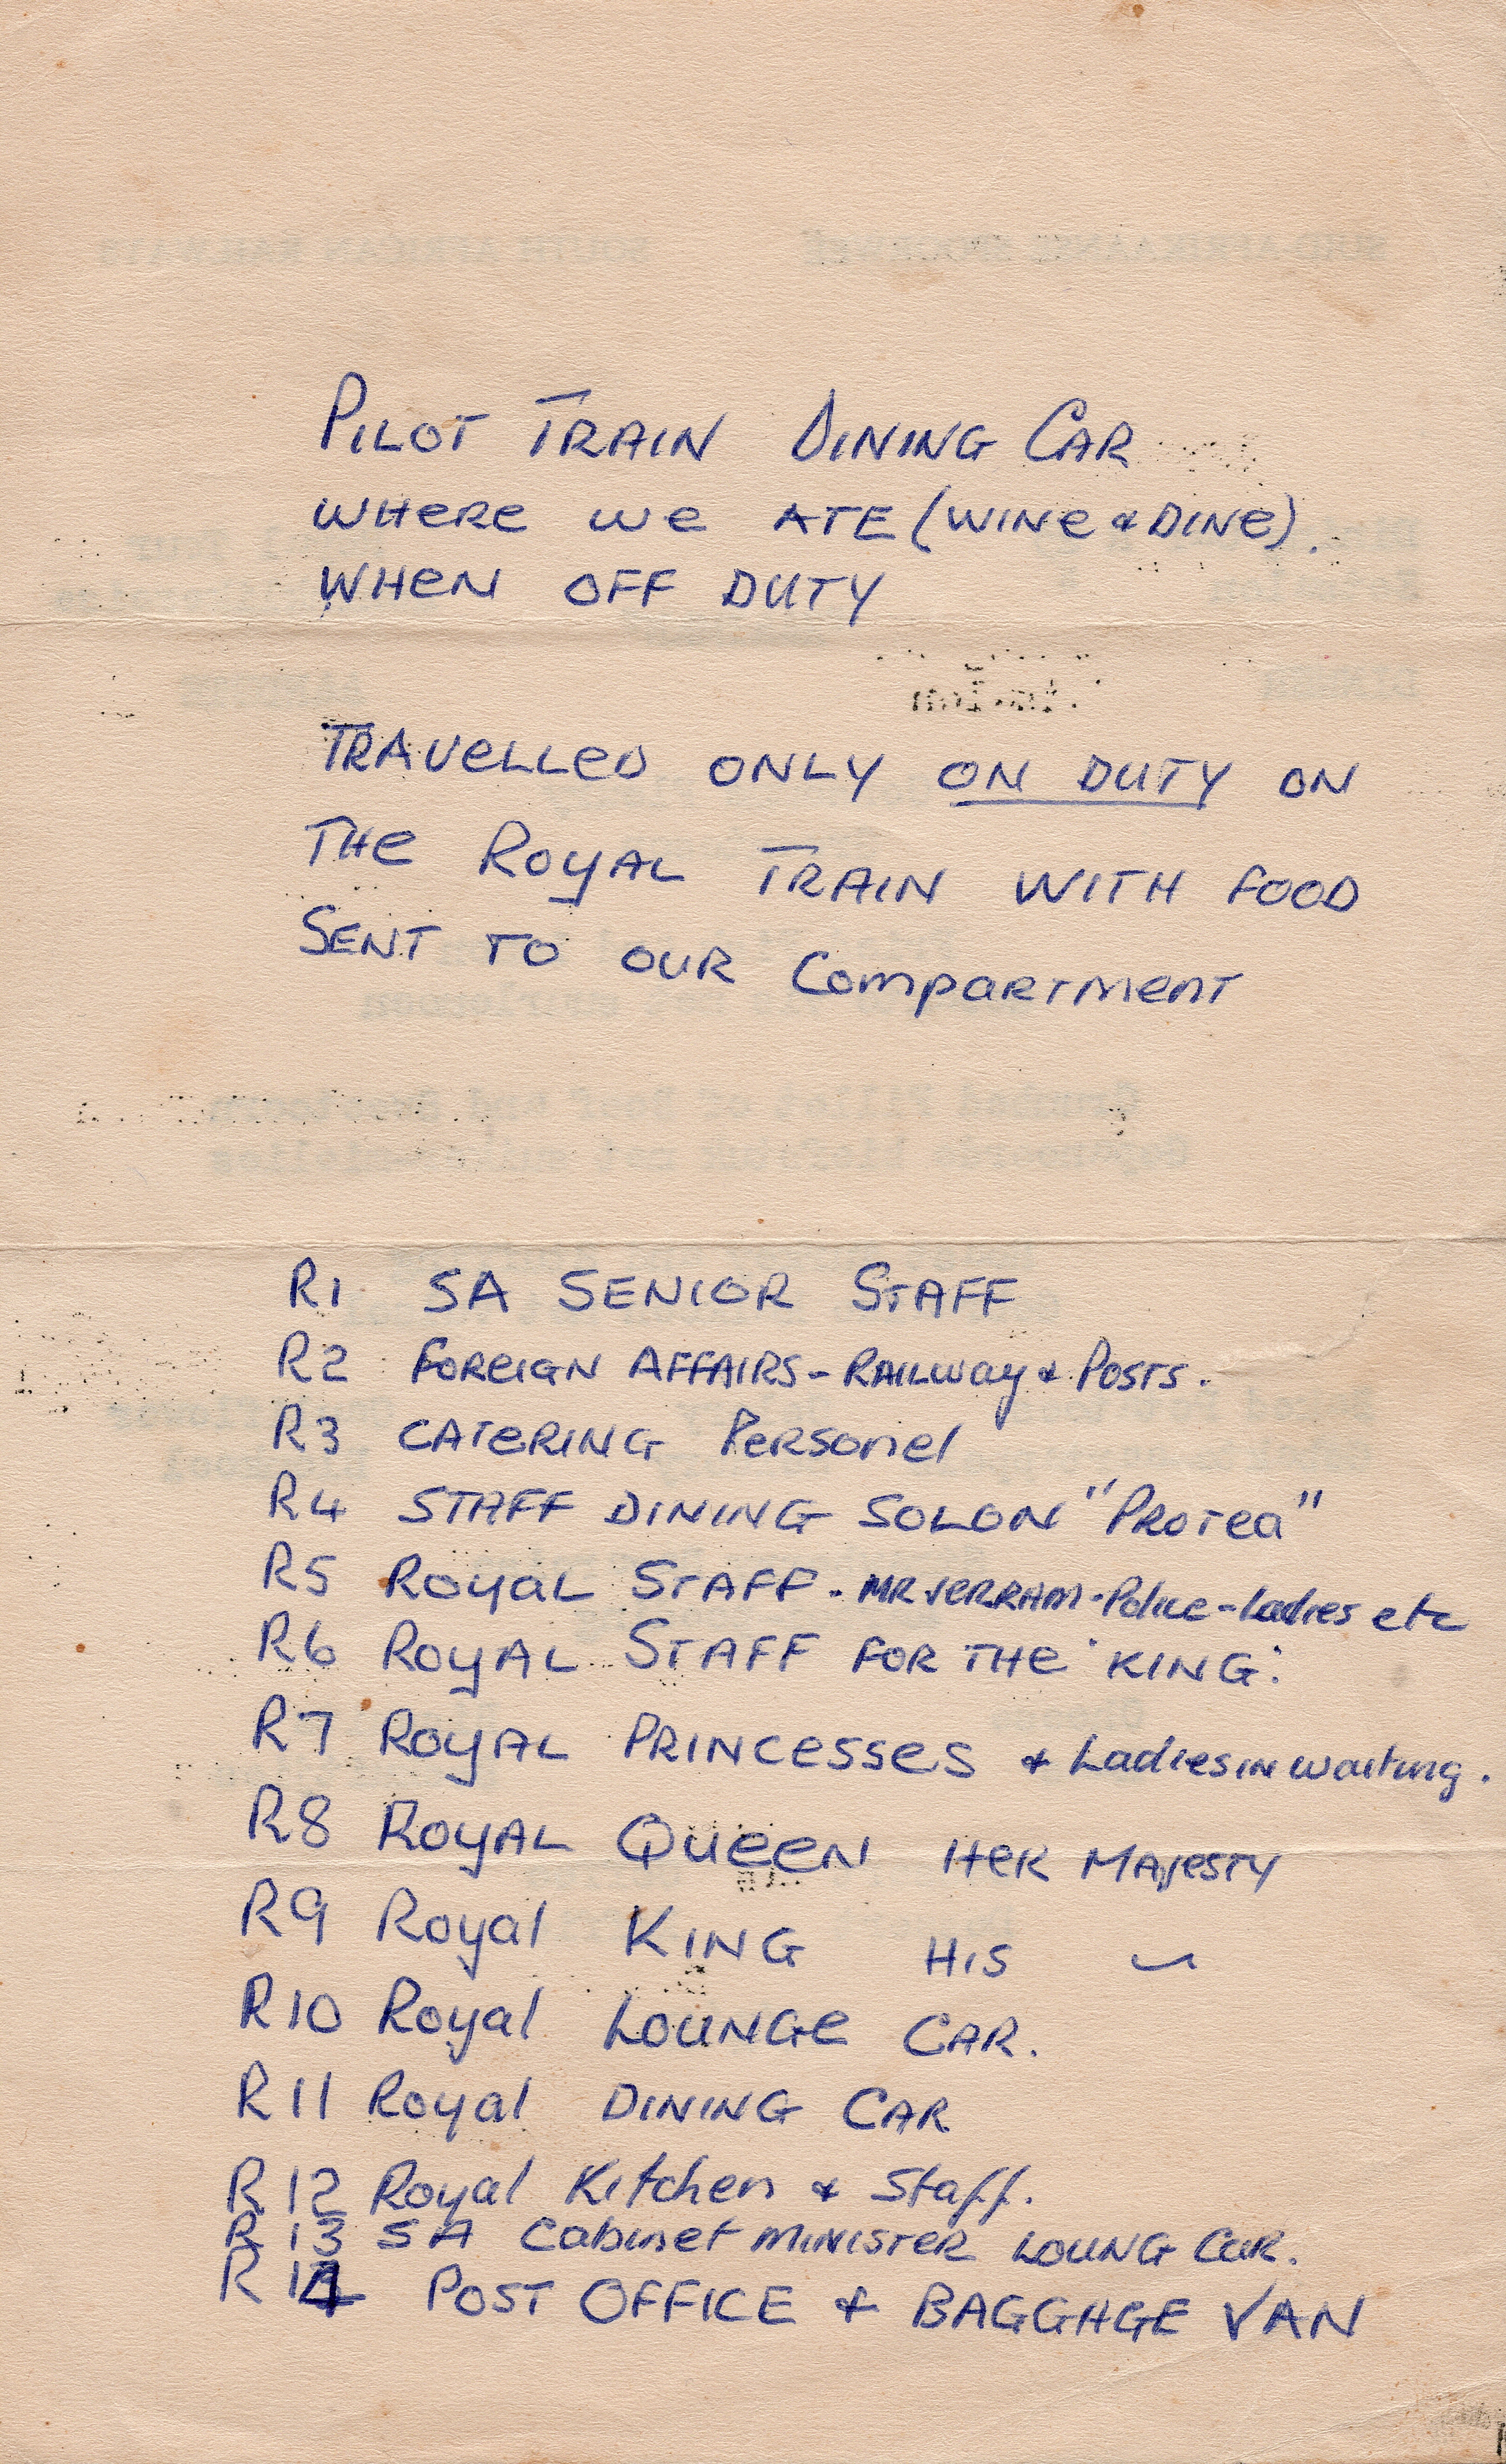 PILOT TRAIN DINING CAR
WHERE WE ATE (WINE & DINE).
WHEN OFF DUTY
TRAVELLED ONLY ON DUTY ON
THE ROYAL TRAIN WITH FOOD
SENT TO OUR COMPARTMENT
R1 SA SENIOR STAFF
R2 FOREIGN AFFAIRS - RAILWAY & POSTS.
R3 CATERING PERSONEL
R4 STAFF DINING SOLON "PROTEA"
R5 ROYAL STAFF - MR VERRAM - Police - Ladies etc
R6 ROYAL STAFF FOR THE 'KING'
R7 ROYAL PRINCESSES & Ladies in waiting.
R8 ROYAL QUEEN HER MAJESTY
R9 Royal KING HIS ~
R10 Royal LOUNGE CAR.
R11 Royal DINING CAR
R12 Royal Kitchen & Staff.
R13 SA Cabinet MINISTER LOUNG CAR.
R14 POST OFFICE & BAGGAGE VAN